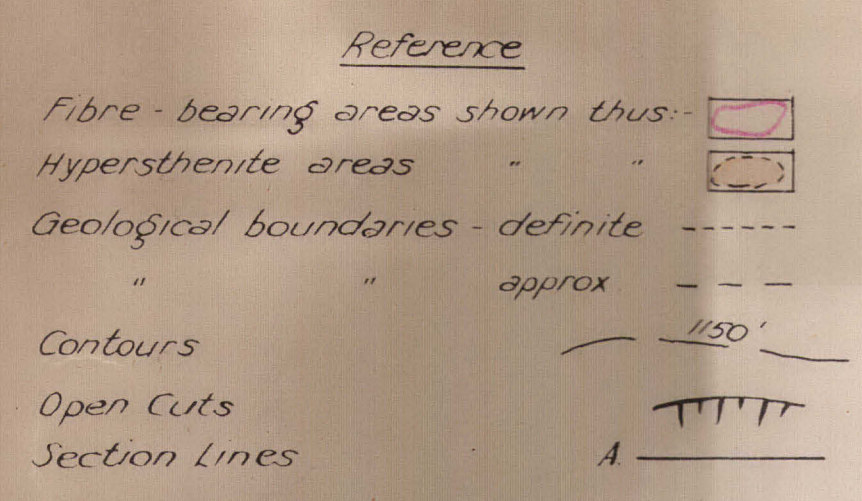 Reference
Fibre - bearing areas shown thus:-
Hypersthenite areas " "
Geological boundaries - definite
" " approx
Contours 1150'
Open Cuts
Section Lines A.